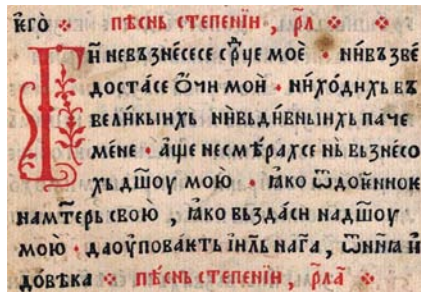 ѥго̀ пѣснь степенїи , р҃л
Ги҃ невъзнесесе ср҃це моѐ • нивъзве
достасе ѡ҆чи мои • ниходихъ въ
великыихъ нивьдивныихъ паче
мене • аще несмѣрахсе нь възнесо
хь дш҃оу мою • ꙗко ѿдоѥнноѥ
намт҃ерь свою , ꙗко въздаси надш҃оу
мою • даоуповаѥть їил҃ь нага , ѿнн҃ꙗ и
довѣка пѣснь степенїи , р҃ла